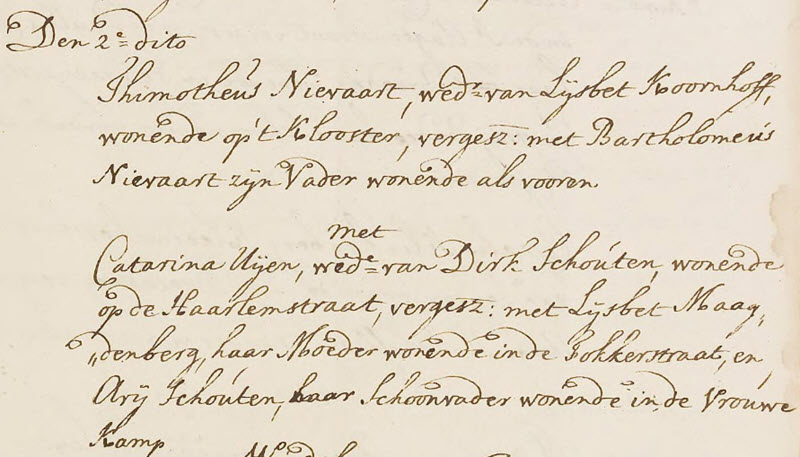 Den 2e dito
Thimotheus Nievaart, wedr van Lysbet Koornhoff,
wonende op 't Klooster, vergesz: met Bartholomeus
Nievaart zijn Vader wonende als vooren.
met
Catarina Uijen, wede van Dirk Schouten, wonende
op de Haarlemstraat, vergesz: met Lysbet Maag„
„denberg, haar Moeder wonende in de Fokkerstraat, en
Arij Schouten, haar Schoonvader wonende in de Vrouwe
Kamp